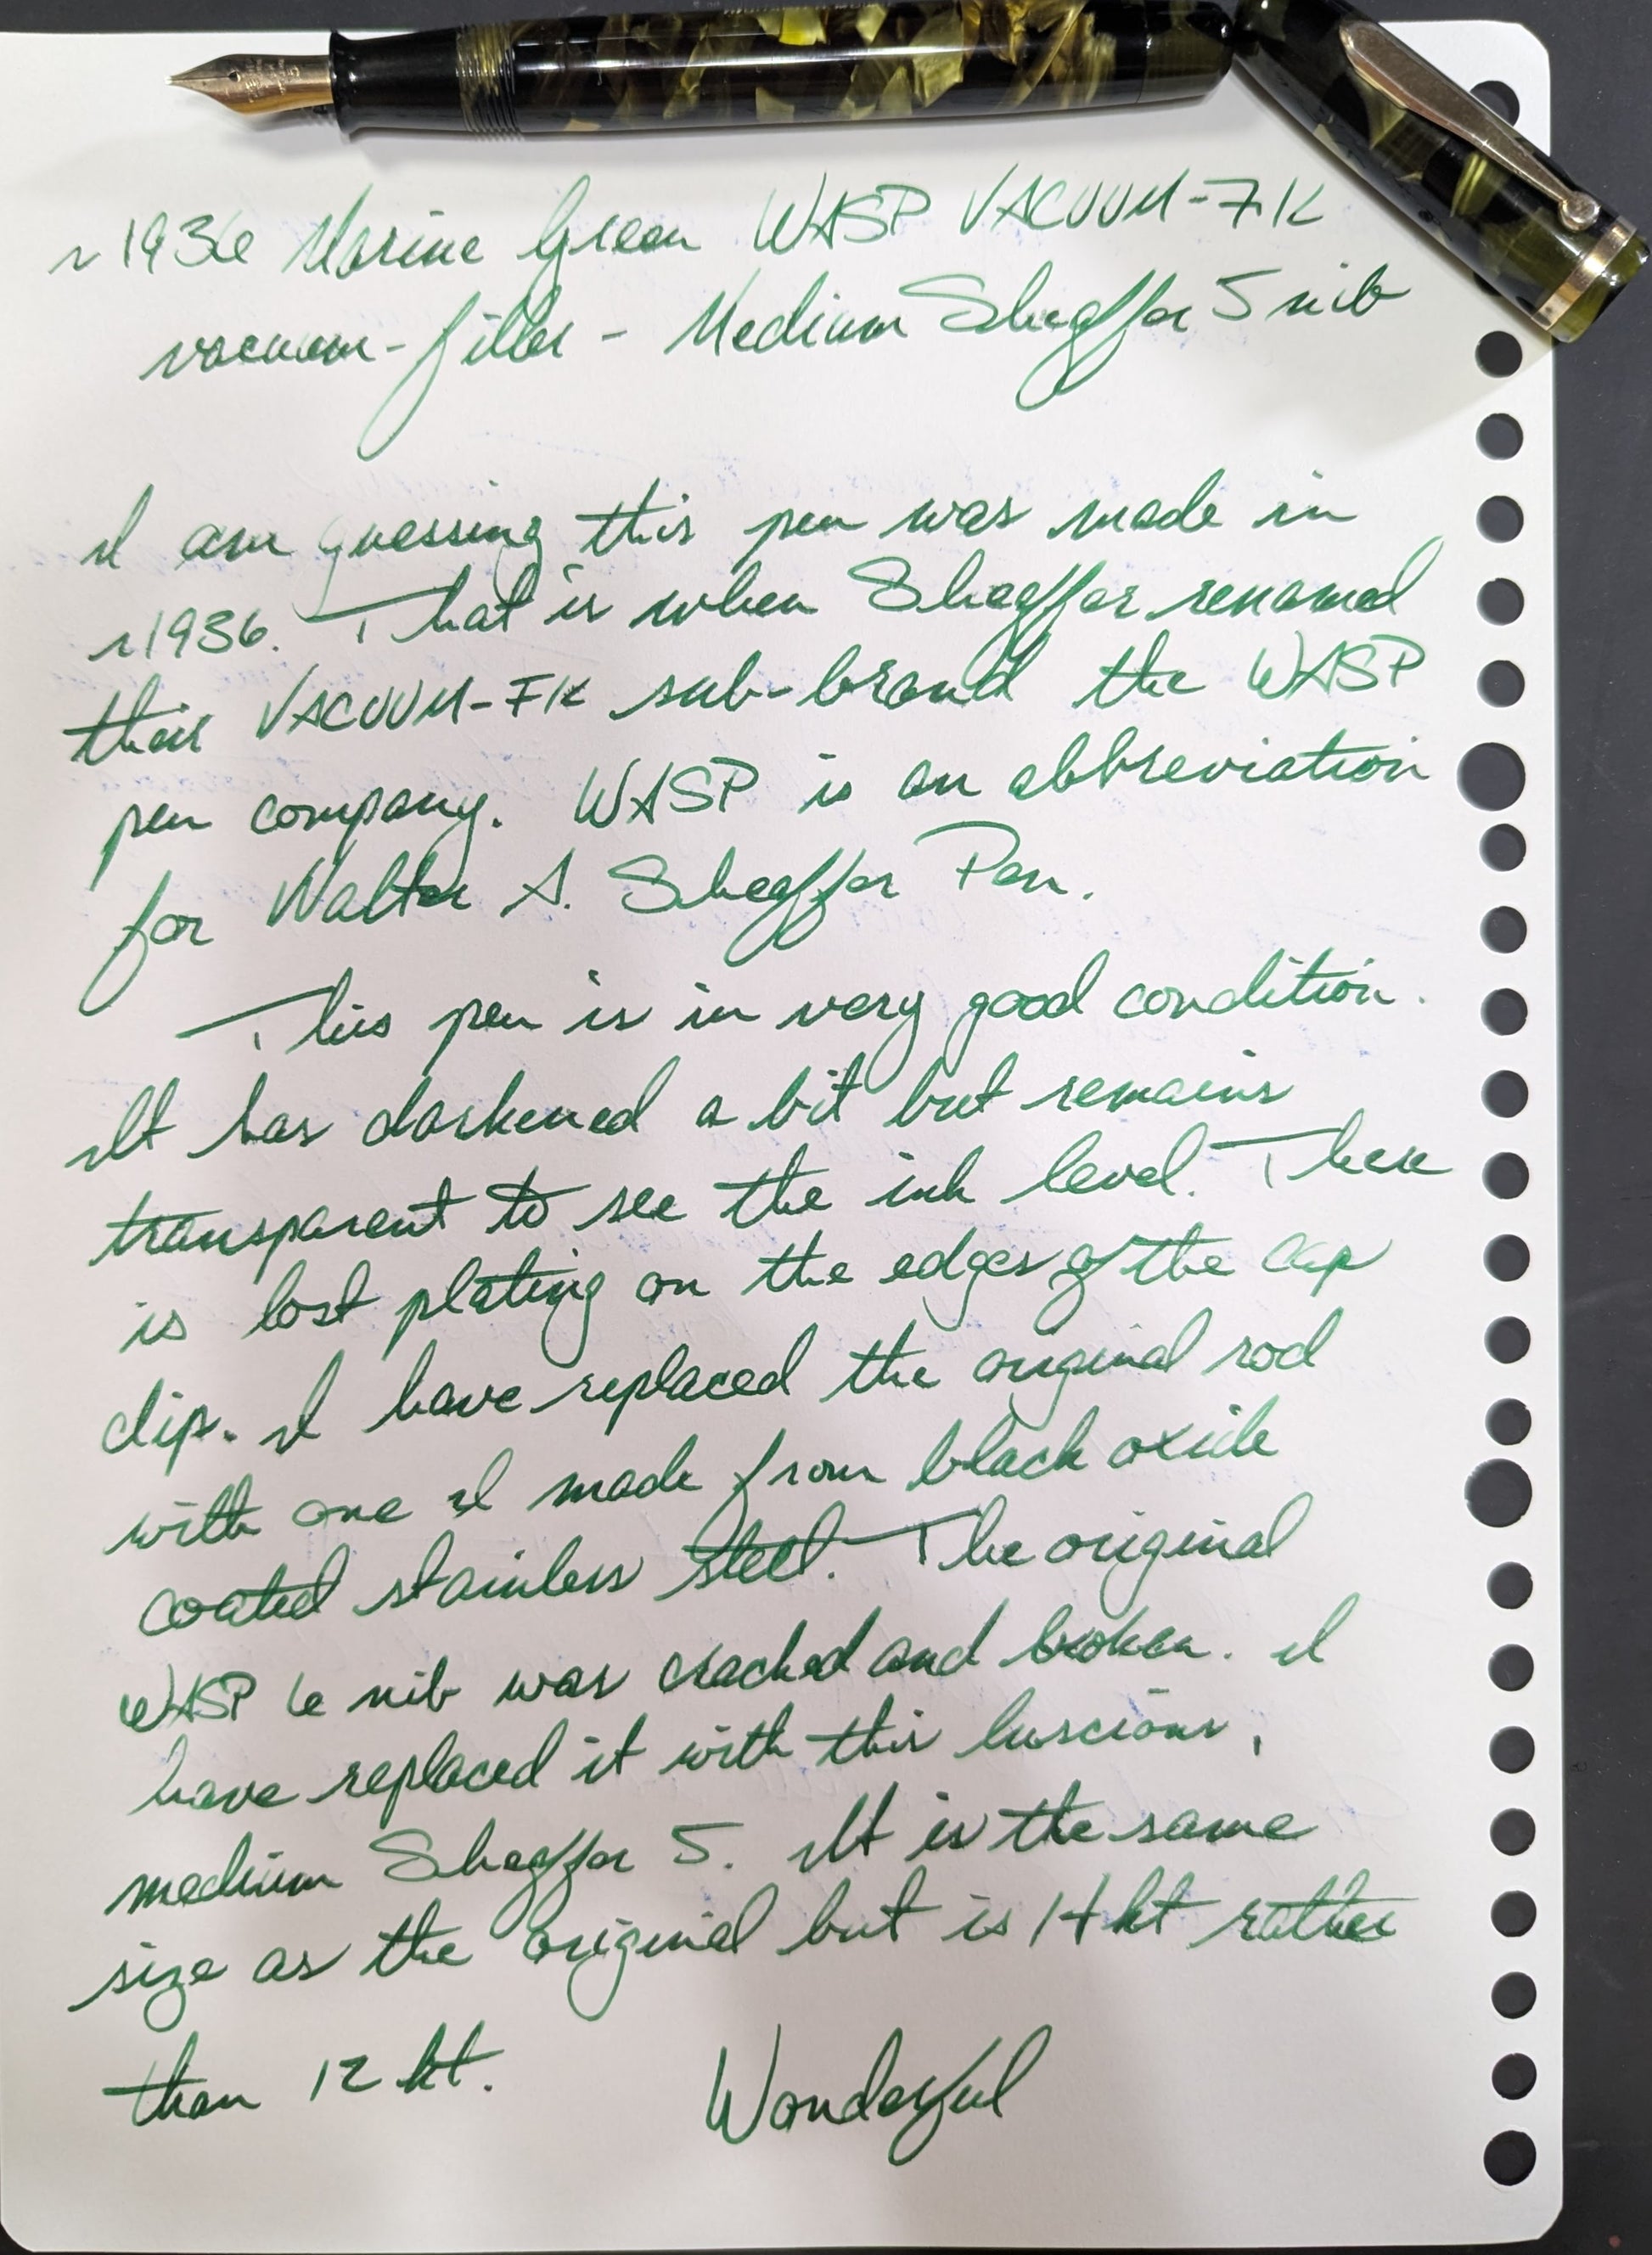 ~1936 Marine Green WASP VACUUM-FIL
vacuum-filler - Medium Sheaffer 5 nib
I am guessing this pen was made in
~1936. That is when Sheaffer renamed
their VACUUM-FIL sub-brand the WASP
pen company. WASP is an abbreviation
for Walter A. Sheaffer Pen.
This pen is in very good condition.
It has darkened a bit but remains
transparent to see the ink level. There
is lost plating on the edges of the cap
clip. I have replaced the original rod
with one I made from black oxide
coated stainless steel. The original
WASP 6 nib was cracked and broken. I
have replaced it with this luscious,
medium Sheaffer 5. It is the same
size as the original but is 14 kt rather
than 12 kt. Wonderful